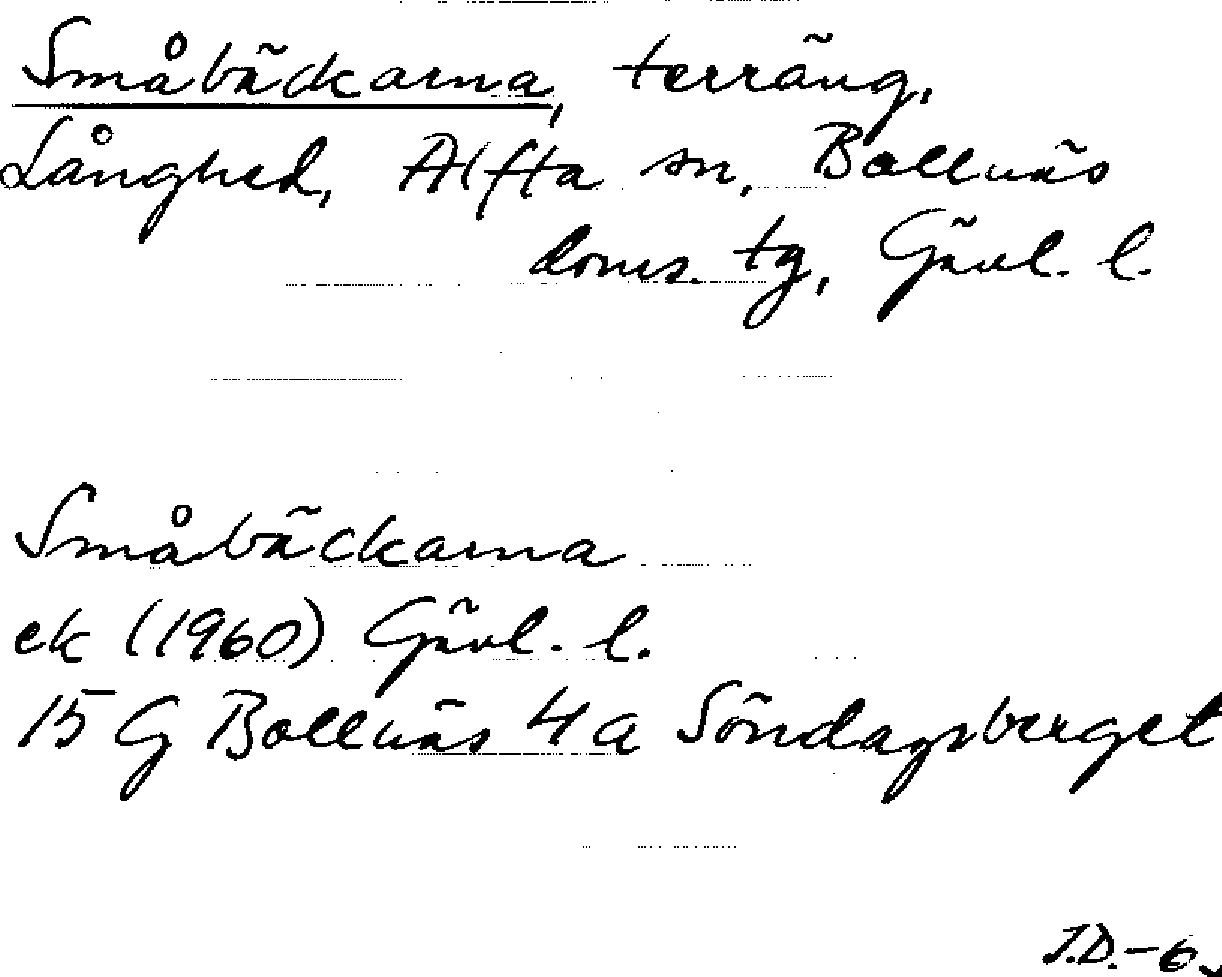 Småbäckarna, terräng,
Långhed, Alfta sn, Bollnäs
doms. tg, Gävl. l.
Småbäckarna
ek (1960) Gävl. l.
15 G Bollnäs 4 a Söndagsberget